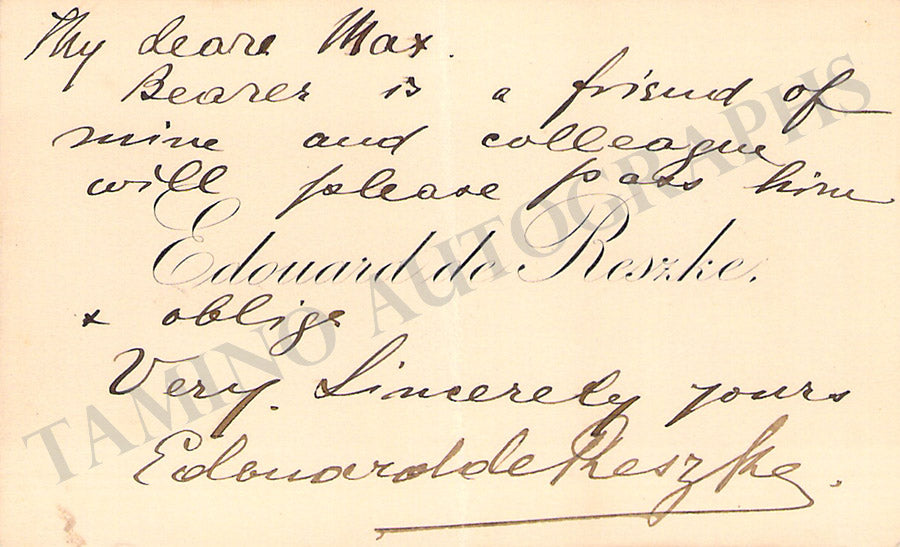 My deare Max.
Bearer is a friend of
mine and colleague
will please pass him
Edouard de Reszke.
& oblige
Very. Sincerely yours
Edouard de Reszke.
TAMINO AUTOGRAPHS